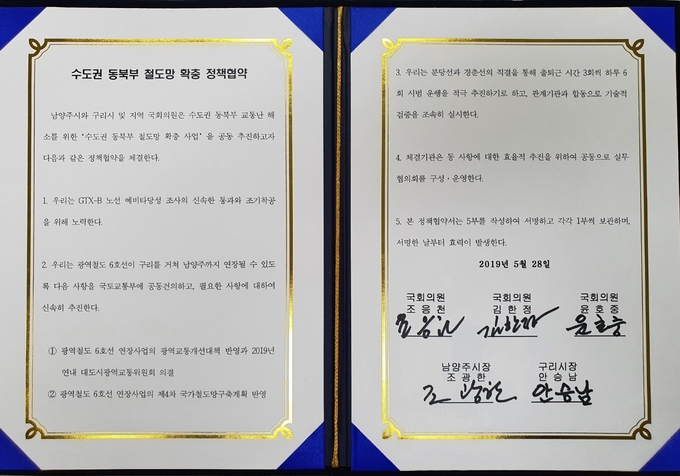 수도권 동북부 철도망 확충 정책협약
남양주시와 구리시 및 지역 국회의원은 수도권 동북부 교통난 해
소를 위한 "수도권 동북부 철도망 확충 사업"을 공동 추진하고자
다음과 같은 정책협약을 체결한다.
1. 우리는 GTX-B 노선 예비타당성 조사의 신속한 통과와 조기착공
을 위해 노력한다.
2. 우리는 광역철도 6호선이 구리를 거쳐 남양주까지 연장될 수 있도
록 다음 사항을 국토교통부에 공동건의하고, 필요한 사항에 대하여
신속히 추진한다.
① 광역철도 6호선 연장사업의 광역교통개선대책 반영과 2019년
연내 대도시광역교통위원회 의결
② 광역철도 6호선 연장사업의 제4차 국가철도망구축계획 반영
3. 우리는 분당선과 경춘선의 직결을 통해 출퇴근 시간 3회씩 하루 6
회 시범 운행을 적극 추진하기로 하고, 관계기관과 합동으로 기술적
검증을 조속히 실시한다.
4. 체결기관은 동 사항에 대한 효율적 추진을 위하여 공동으로 실무
협의회를 구성·운영한다.
5. 본 정책협약서는 5부를 작성하여 서명하고 각각 1부씩 보관하며,
서명한 날부터 효력이 발생한다.
2019년 5월 28일
국회의원 국회의원 국회의원
조응천 김한정 윤호중
조응천 김한정 윤호중
남양주시장 구리시장
조광한 안승남
조광한 안승남